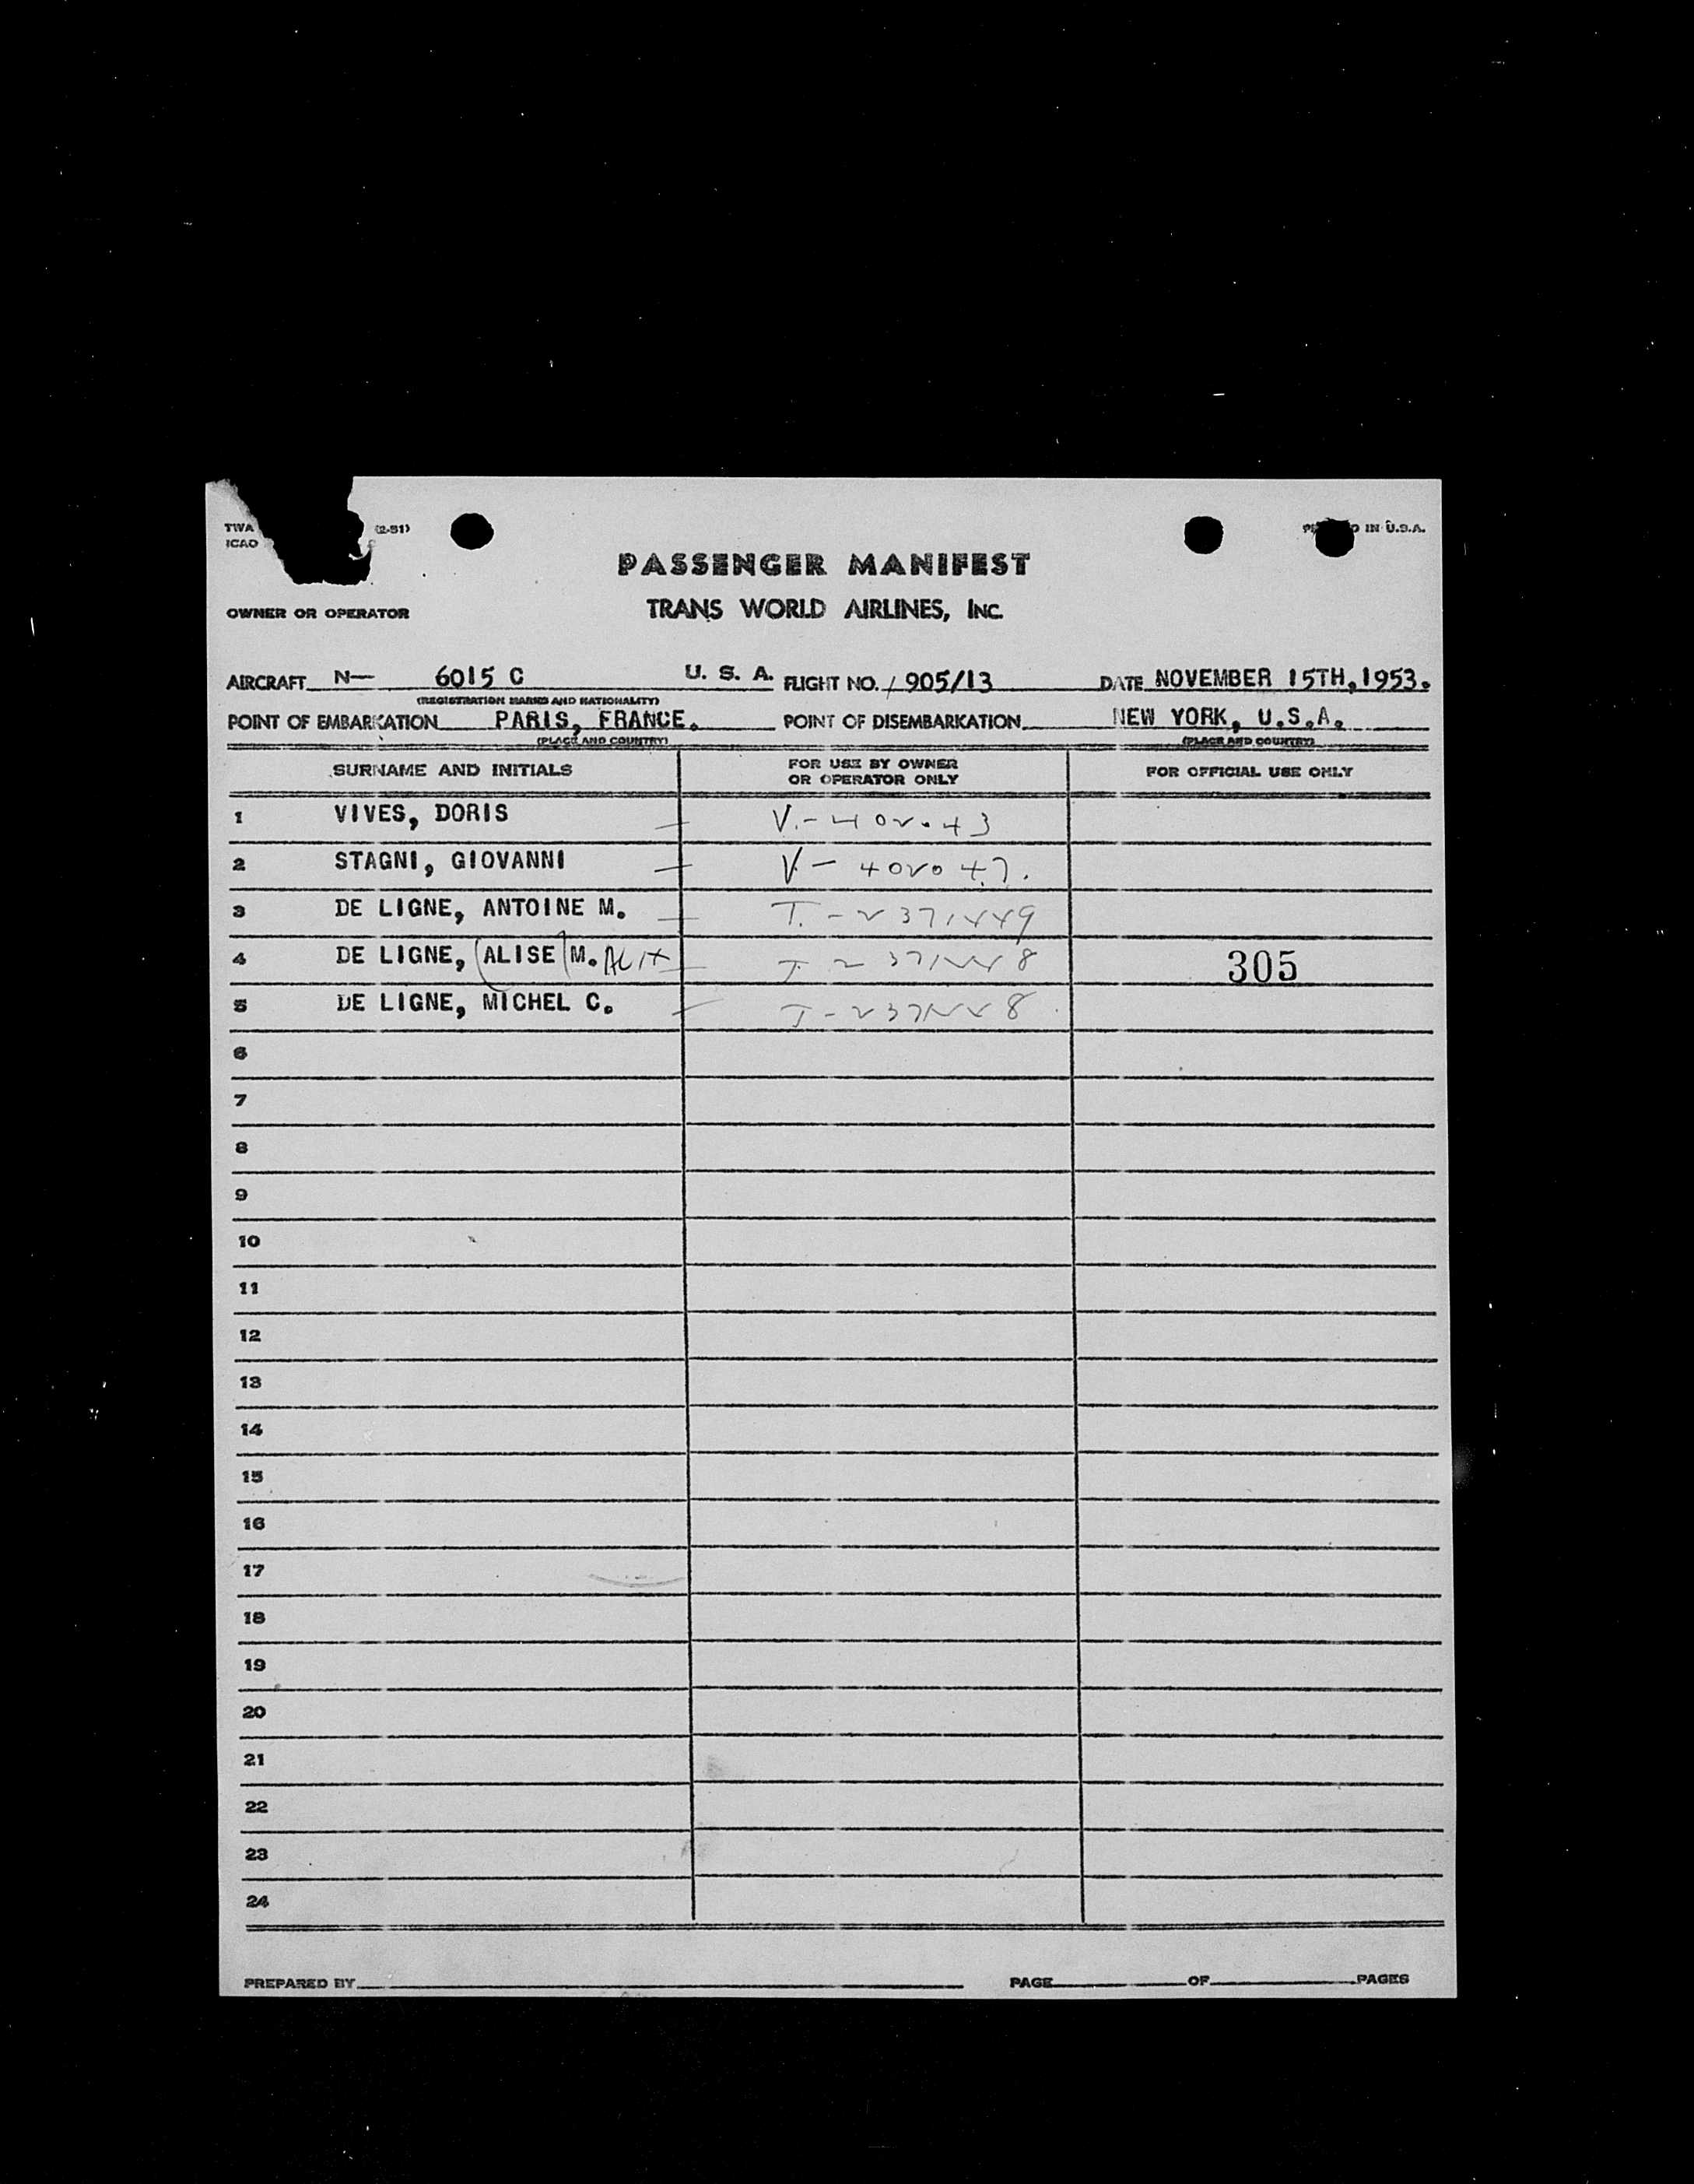 TWA (2-51) IN U.S.A.
ICAO
PASSENGER MANIFEST
OWNER OR OPERATOR TRANS WORLD AIRLINES, INC.
AIRCRAFT N— 6015 C U. S. A. FLIGHT NO. / 905/13 DATE NOVEMBER 15TH, 1953.
(REGISTRATION MARKS AND NATIONALITY)
POINT OF EMBARKATION PARIS, FRANCE. POINT OF DISEMBARKATION NEW YORK, U.S.A.
(PLACE AND COUNTRY) (PLACE AND COUNTRY)
SURNAME AND INITIALS FOR USE BY OWNER OR OPERATOR ONLY FOR OFFICIAL USE ONLY
1 VIVES, DORIS V.-402043
2 STAGNI, GIOVANNI V-402047.
3 DE LIGNE, ANTOINE M.
4 DE LIGNE, (ALISE) M. ALIX 305
5 DE LIGNE, MICHEL C.
6
7
8
9
10
11
12
13
14
15
16
17
18
19
20
21
22
23
24
PREPARED BY PAGE OF PAGES